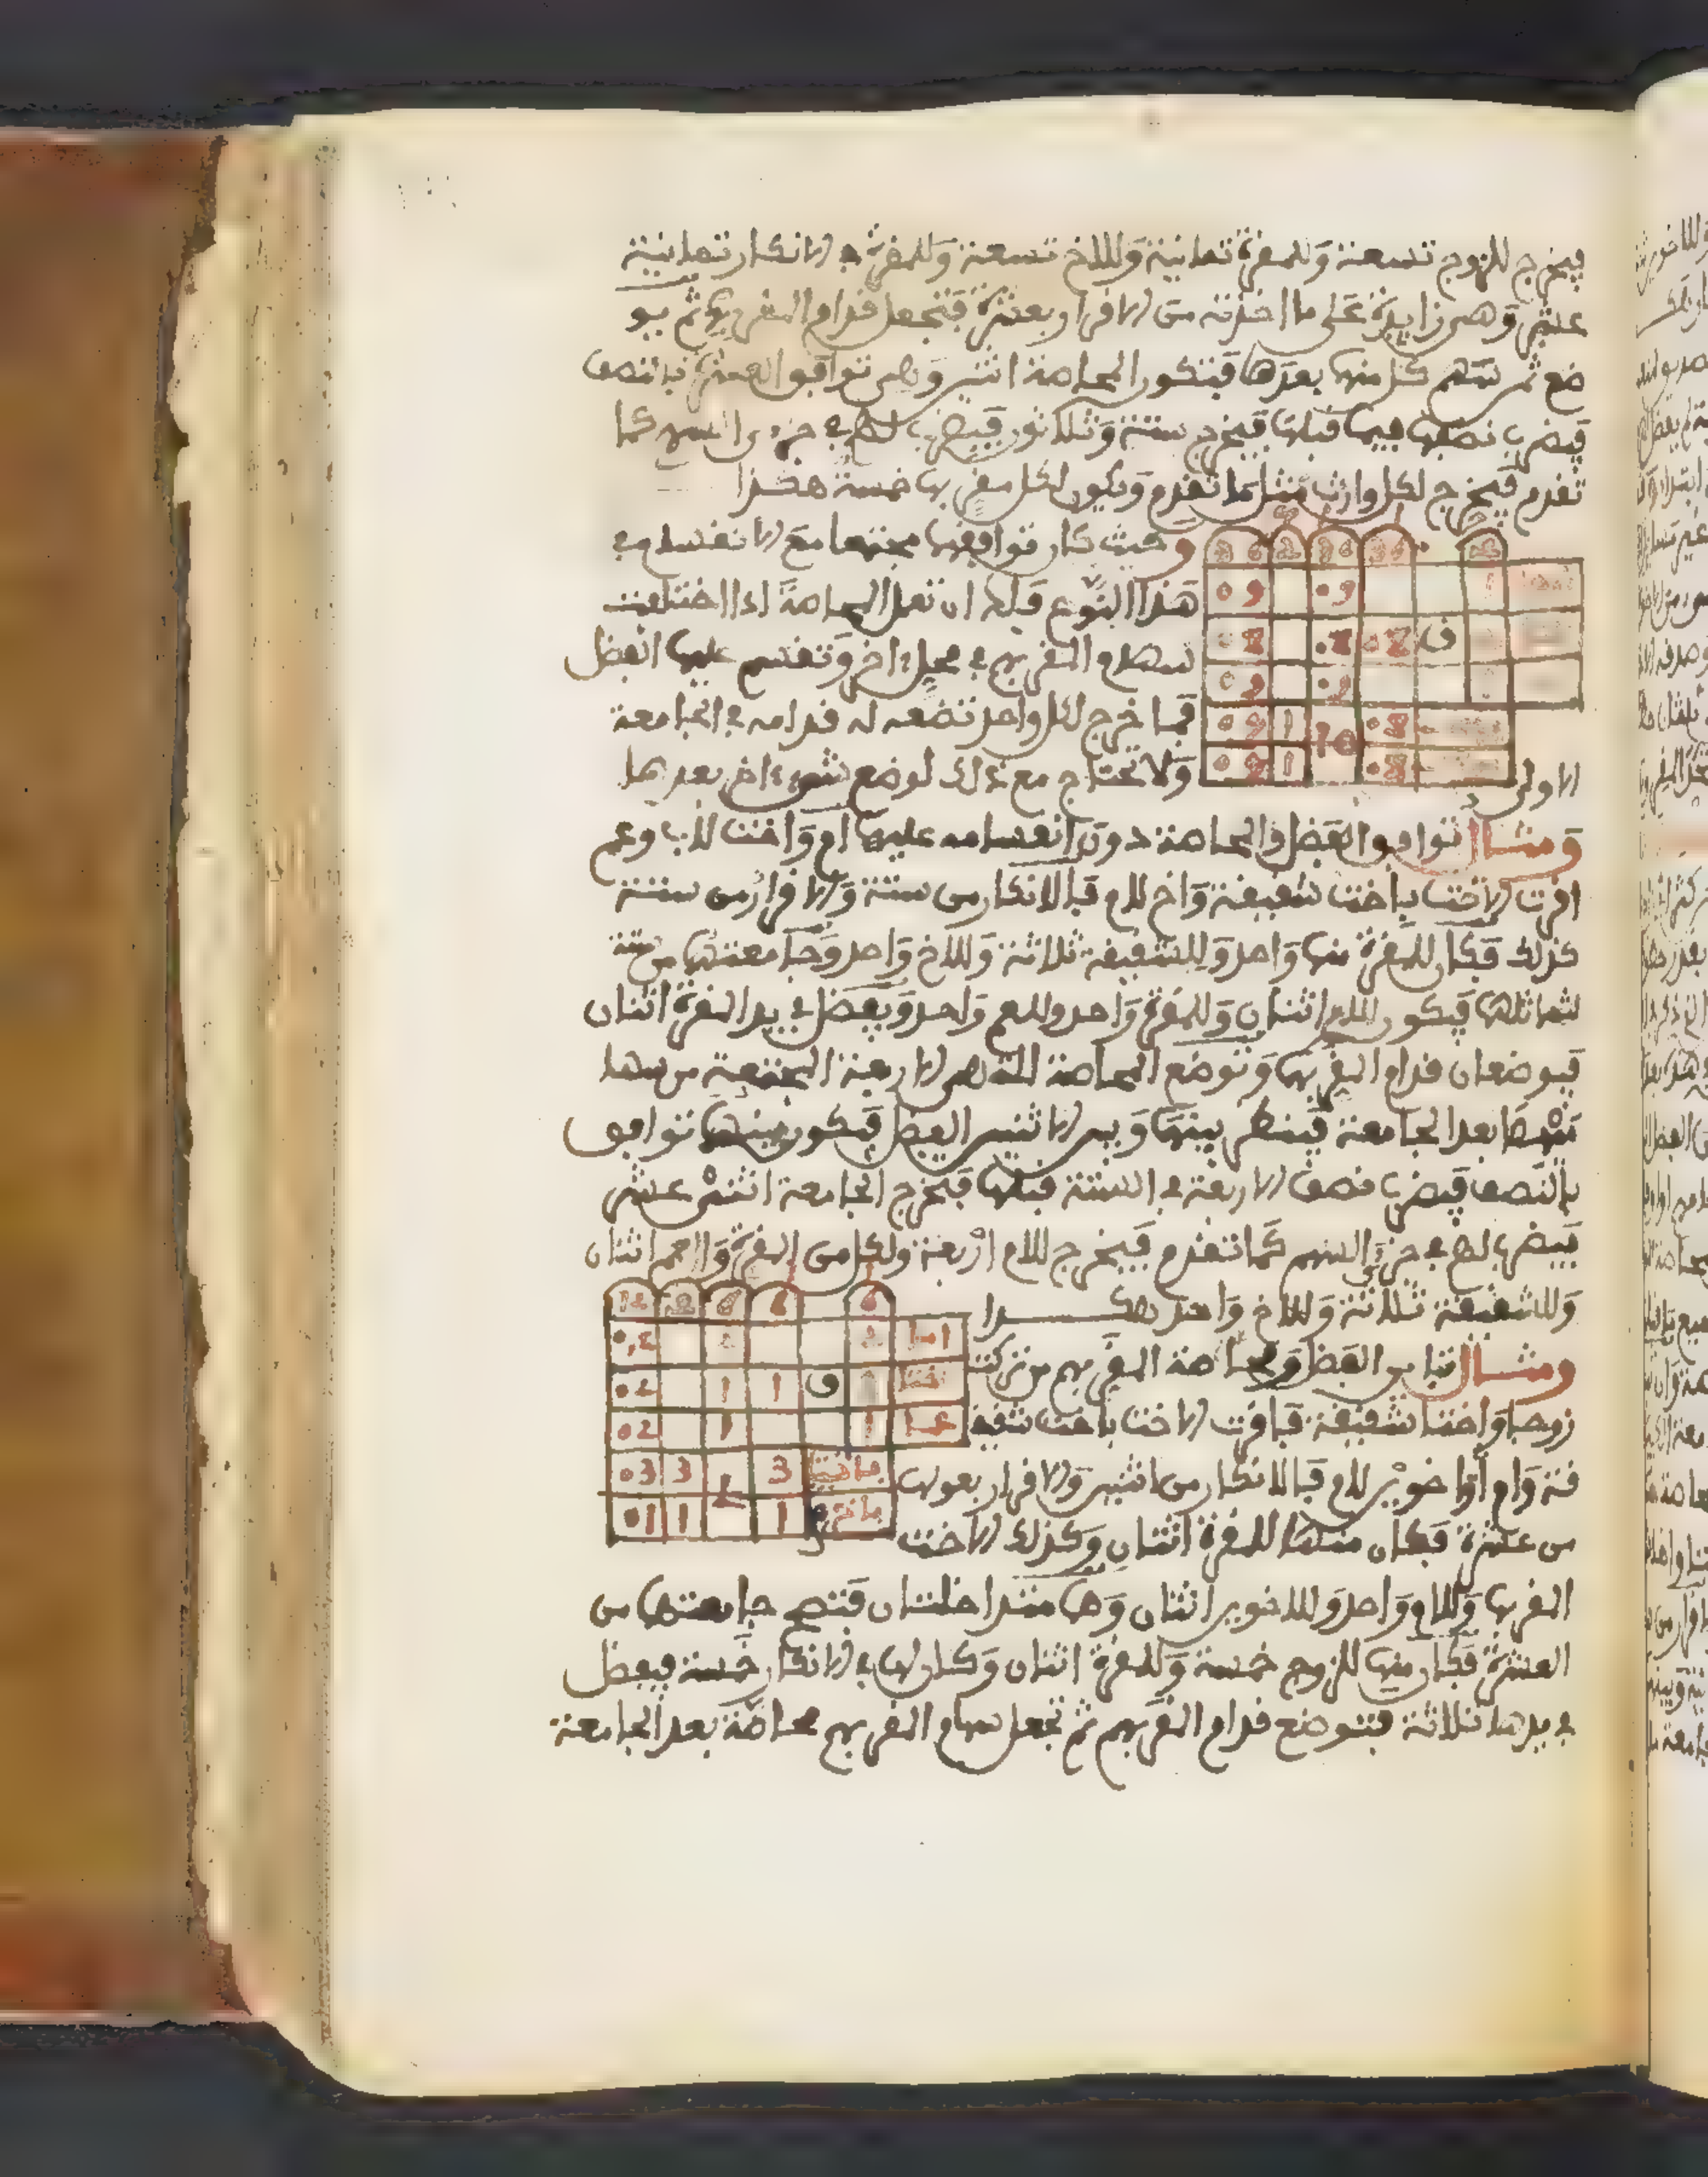 فيخرج للزوج تسعة وللمقرة ثمانية وللاخ تسعة وللمقرة في الانكار ثمانية
عشر وهي زايدة على ما اخذته من الاقرار بعشرة فتجعل قدام المقر بهم ثم يو
ضع ثم سهم كل منهما بعدها فتكون المحاصة اثنين وهي توافق العشرة بالنصف
فيضرب نصفها فيما قبلها فيخرج ستة وثلاثون فيضرب لهم في جزء السهم كما
تقدم فيخرج لكل وارث مثل ما تقدم ويكون لكل مقر بها خمسة هكذا
وحيث كان توافقهما مجتمعا مع الانقسام في
هذا النوع فلك ان تعمل المحاصة اذا اختلفت
سهام المقر بهم في محل ءاخر وتقسم عليها الفضل
فما خرج لكل واحد تضعه له قدامه في الجامعة
الاولى ولا تحتاج مع ذلك لوضع شيء ءاخر بعدها
ومثال توافق الفضل والمحاصة دون انقسامه عليها ام واخت للاب وعم
اقرت الاخت باخت شقيقة واخ للام فالانكار من ستة والاقرار من ستة
كذلك فكان للمقرة منها واحد وللشقيقة ثلاثة وللاخ واحد وجامعتهما من ستة
لتماثلهما فيكون للام اثنان وللمقرة واحد وللعم واحد ويفضل في يد المقرة اثنان
فيوضعان قدام المقر بهما وتوضع المحاصة التي هي الاربعة المجتمعة من سها
مهما بعد الجامعة فينظر بينها وبين الاثنين الفضل فيكون بينهما توافق
بالنصف فيضرب نصف الاربعة في الستة قبلها فتخرج الجامعة اثني عشر
فيضرب لهم في جزء السهم كما تقدم فيخرج للام اربعة ولكل من المقرة والعم اثنان
وللشقيقة ثلاثة وللاخ واحد هكذا
ومثال تباين الفضل ومحاصة المقر بهم من تركت
زوجا واختا شقيقة فاقرت الاخت باخت شقيـ
قة وام واخوين للام فالانكار من اثنين والاقرار بعولها
من عشرة فكان منها للمقرة اثنان وكذلك الاخت
المقر بها وللام واحد وللاخوين اثنان وهما متداخلتان فتصح جامعتهما من
العشرة فكان منها للزوج خمسة وللمقرة اثنان وكان لها في الانكار خمسة فيفضل
في يدها ثلاثة فتوضع قدام المقر بهم ثم تجعل سهام المقر بهم محاصة بعد الجامعة